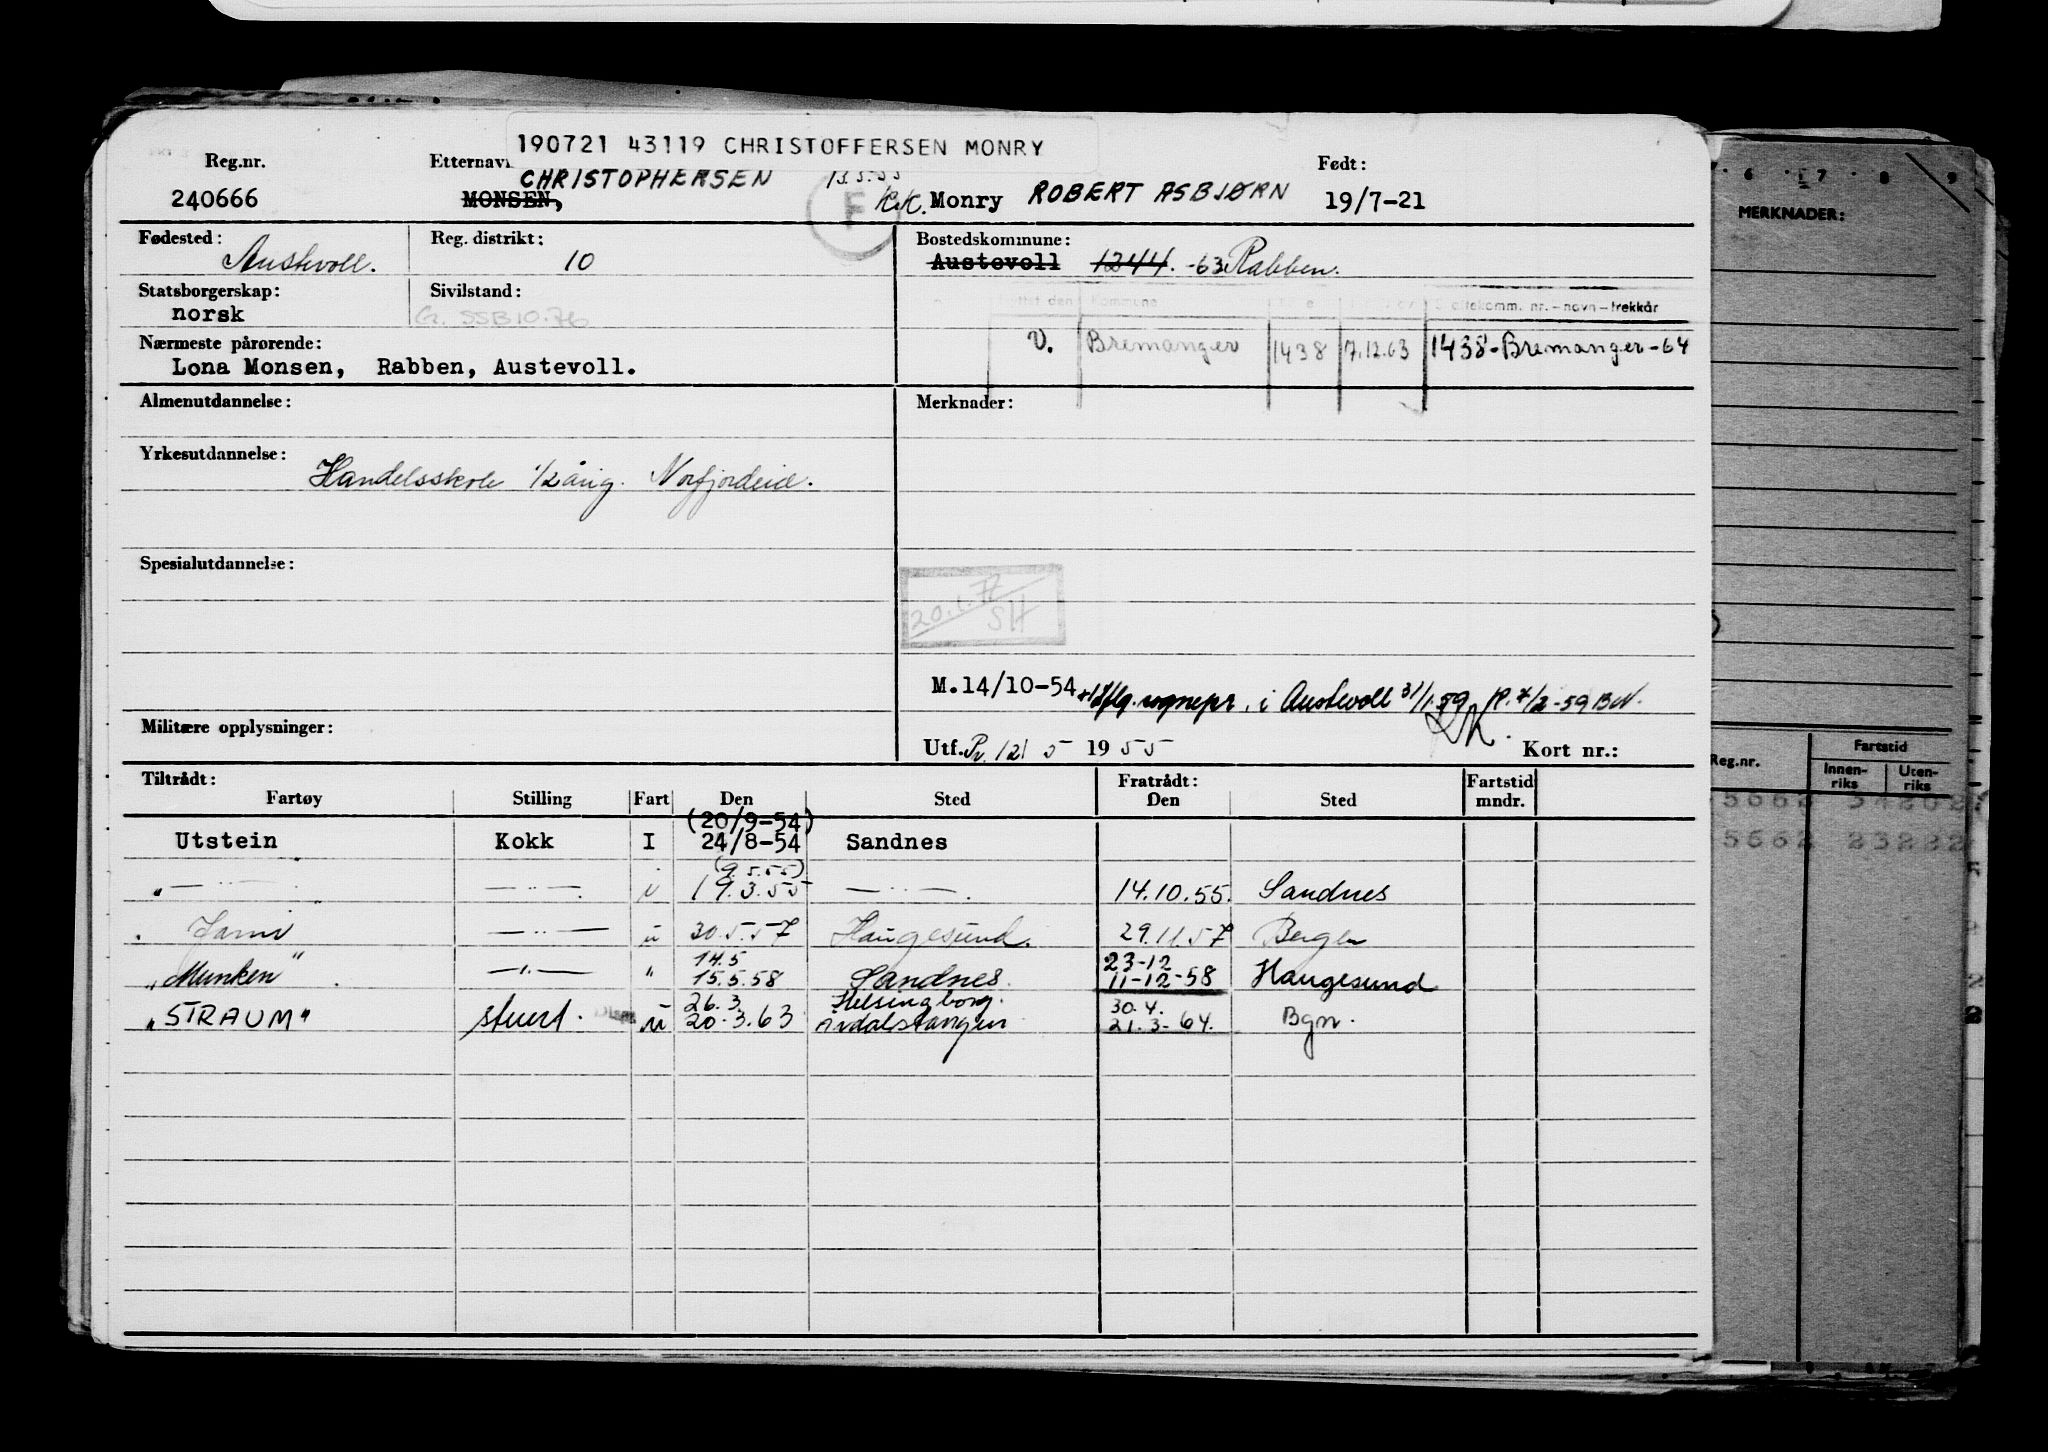 190721 43119 CHRISTOFFERSEN MONRY
Reg.nr. Etternavn Født:
CHRISTOPHERSEN
240666 MONSEN, F K.K. Monry ROBERT ASBJØRN 19/7-21
Fødested: Reg. distrikt: Bostedskommune:
Austevoll. 10 Austevoll 1244. -63 Rabben.
Statsborgerskap: Sivilstand:
norsk G. SSB 10.76
Kommune Skattekomm. nr. – navn – trekkår
Nærmeste pårørende: V. Bremanger 1438 7.12.63 1438-Bremanger-64
Lona Monsen, Rabben, Austevoll.
Almenutdannelse: Merknader:
Yrkesutdannelse:
Handelsskole 1/2 årig. Norfjordeid.
Spesialutdannelse:
20.1.77
SH
M.14/10-54 sognepr. i Austevoll 31/1.59 R. 7/2-59 BN.
Militære opplysninger:
Utf. Pr. 12/ 5 1955 Kort nr.:
Tiltrådt: Fratrådt: Fartstid
Fartøy Stilling Fart Den Sted Den Sted mndr.
(20/9-54)
Utstein Kokk I 24/8-54 Sandnes
(9.5.55)
" — " — — " — 19.3.55 — " — . 14.10.55. Sandnes
— " — u 30.5.57 Haugesund. 29.11.57 Bergen
14.5 23-12
"Munken" — " — " 15.5.58 Sandnes. 11-12-58 Haugesund
26.3. Helsingborg. 30.4.
"STRAUM" stuert. u 20.3.63 Årdalstangen 21.3-64. Bgn.
6 7 8 9
MERKNADER:
Reg.nr. Fartstid
Innen-
riks Uten-
riks
5662 34202
5662 23222